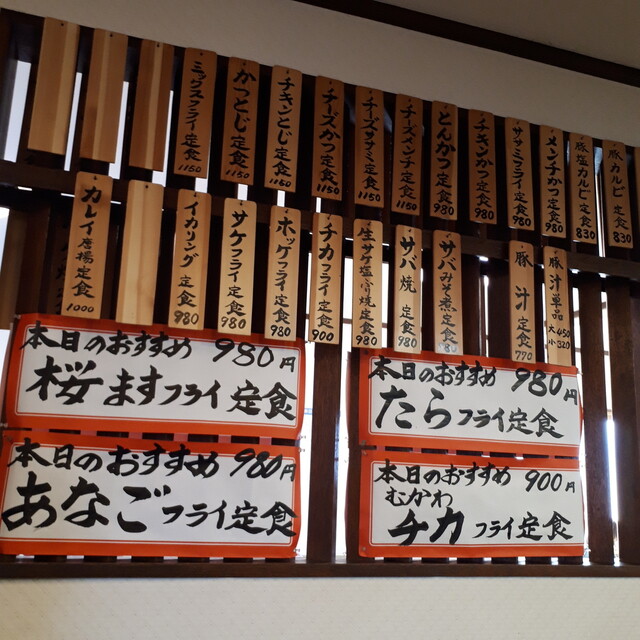 ミックスフライ定食 1150
かつとじ定食 1150
チキンとじ定食 1150
チーズかつ定食 1150
チーズササミ定食 1150
チーズメンチ定食 1150
とんかつ定食 980
チキンかつ定食 980
ササミフライ定食 980
メンチかつ定食 980
豚塩カルビ定食 830
豚カルビ定食 830
カレイ唐揚定食 1000
イカリング定食 980
サケフライ定食 980
ホッケフライ定食 980
チカフライ定食 900
生サケ塩ふり焼定食 980
サバ焼定食 980
サバみそ煮定食 980
豚汁定食 770
豚汁単品 大450 小320
本日のおすすめ 980円
桜ますフライ定食
本日のおすすめ 980円
たらフライ定食
本日のおすすめ 980円
あなごフライ定食
本日のおすすめ 900円
むかわ
チカフライ定食